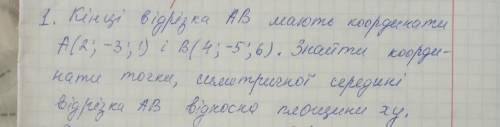 1. Кінці відрізка АВ мають координати
А(2; -3; 1) і В(4; -5; 6). Знайти коорди-
нати точки, симетричної середині
відрізка АВ відносно площини xy.